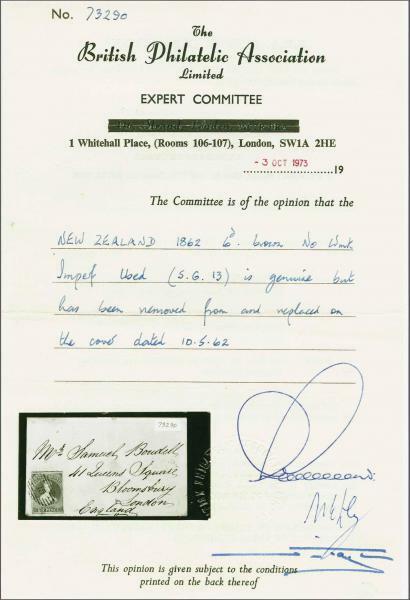 No. 73290
The
British Philatelic Association
Limited
EXPERT COMMITTEE
1 Whitehall Place, (Rooms 106-107), London, SW1A 2HE
- 3 OCT 1973
19
The Committee is of the opinion that the
NEW ZEALAND 1862 6d. brown No Wmk
Imperf Used (S.G. 13) is genuine but
has been removed from and replaced on
the cover dated 10.5.62
73290
Mrs Samuel Boudell
41 Queens Square
Bloomsbury
London
England
This opinion is given subject to the conditions
printed on the back thereof